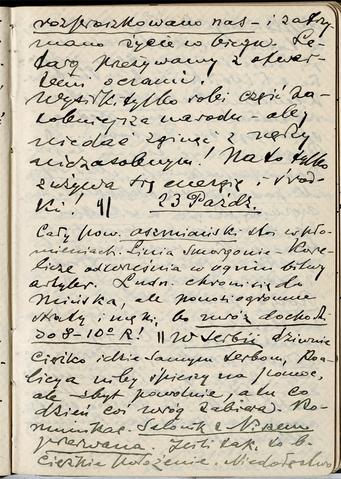 rozproszkowano nas - i zatrzy
mano życie w biegu. Le-
targ przeżywamy z otwar-
temi oczami.
Wysiłki tylko robi część za-
sobniejsza narodu - aby
nie dać zginąć z nędzy
niezasobnym! Na to tylko
zużywa się energię i środ-
ki! 23 Paźdz.
Cały pow. oszmiański stoi w pło-
mieniach. Linia Smorgonie - Kore-
licze od września w ogniu bitwy
artyler. Ludn. chroni się do
Mińska, ale ponosi ogromne
straty i męki, bo mróz dochodzi
do 8-10° R! || W Serbii dziwnie
ciężko idzie samym Serbom, Koa-
licya niby śpieszy na pomoc,
ale zbyt powolnie, a tu co
dzień coś wróg zabiera. Ko-
munikac. Salonik z Niszem
przerwana. Jeśli tak, to b.
ciężkie położenie. Niedołęstwo